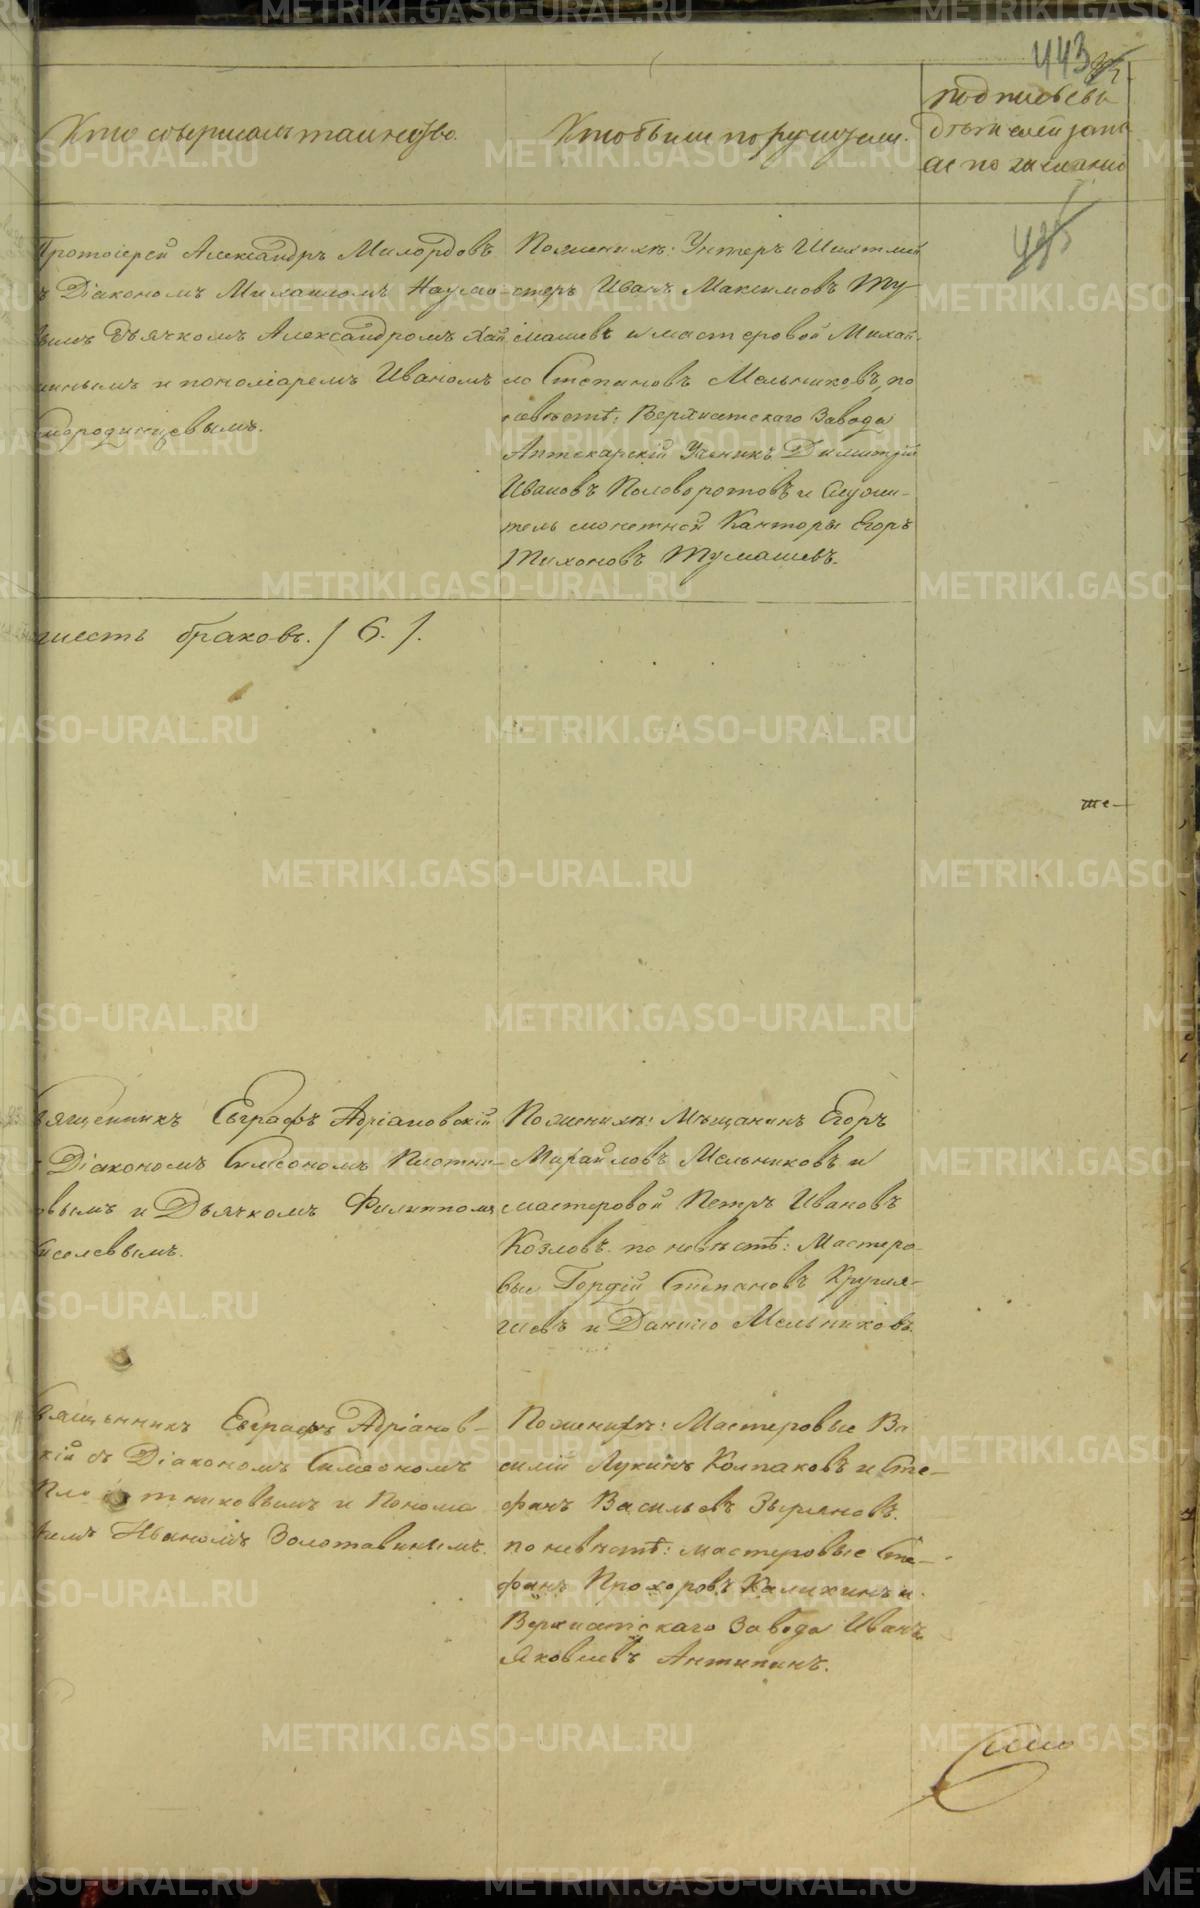 443
Кто совершалъ таинство.
Кто были поручители.
подпись сви
дѣтелей запи
си по желанію
Протоіерей Александръ Милордовъ
ъ Діакономъ Михаиломъ Наумо-
вымъ дьячкомъ Александромъ Хай
инымъ и пономаремъ Иваномъ
мородинцевымъ.
По женихѣ: Унтеръ Шихтмей
стеръ Иванъ Максимовъ Ту
машевъ и мастеровой Михай
ло Степановъ Мельниковъ, по
невѣстѣ: Верхисетскаго Завода
Аптекарскій Ученикъ Димитрій
Ивановъ Половоротовъ и Служи-
тель монетной Канторы Егоръ
Тихоновъ Тумашевъ.
шесть браковъ. / 6. /.
же
вященникъ Евграфъ Адріановскій
Діакономъ Симеономъ Плотни-
овымъ и Дьячкомъ Филиппомъ
иселевымъ.
По женихѣ: Мѣщанинъ Егоръ
Михайловъ Мельниковъ и
мастеровой Петръ Ивановъ
Козловъ. по невѣстѣ: Мастеро
вые Гордій Степановъ Кругля-
шевъ и Данило Мельниковъ.
вященникъ Евграфъ Адріанов-
кій съ Діакономъ Симеономъ
Плотниковымъ и Понома
емъ Иваномъ Золотавинымъ.
По женихѣ: Мастеровые Ва
силій Лукинъ Колпаковъ и Сте-
фанъ Васильевъ Зыряновъ.
по невѣстѣ: мастеровые Сте-
фанъ Прохоровъ Калихинъ и
Верхисетскаго Завода Иванъ
Яковлевъ Антипинъ.
METRIKI.GASO-URAL.RU